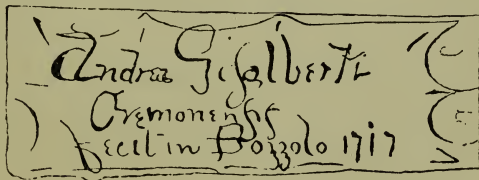 Andrea Gisalberti
Cremonensis
fecit in Bozzolo 1717